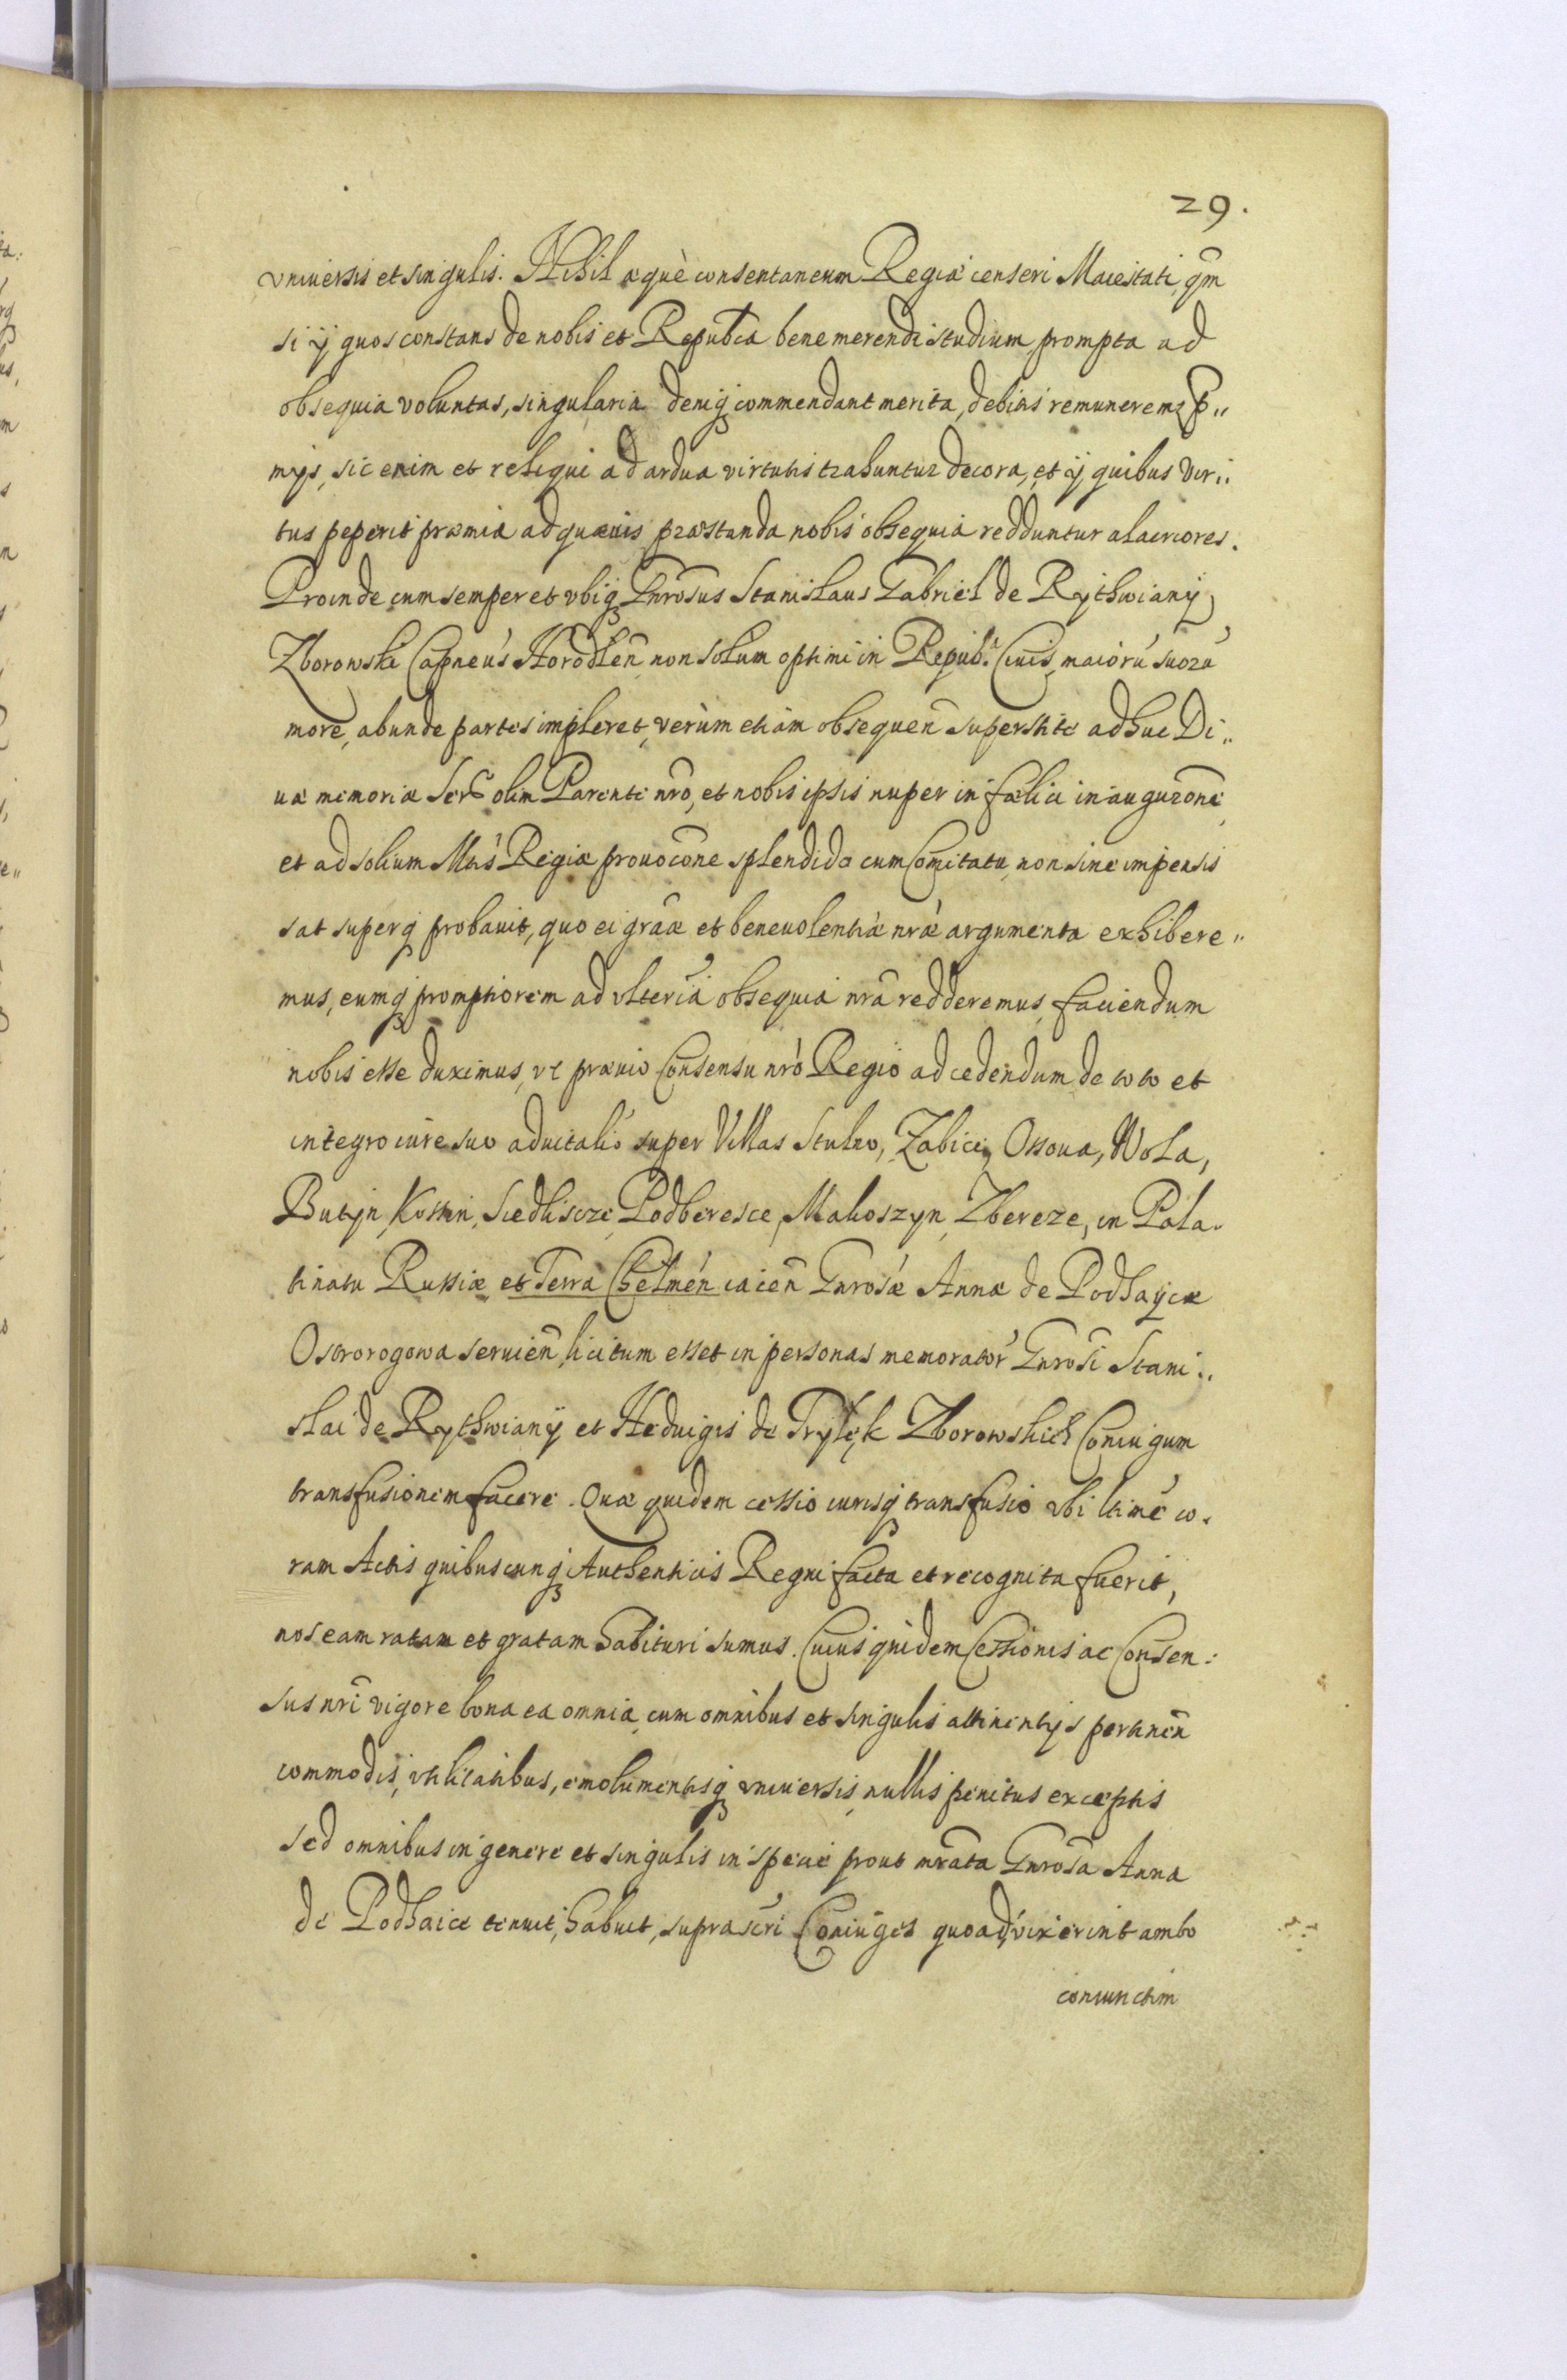 29.
vniuersis et singulis. Nihil æquè consentaneum Regiæ censeri Maiestati, qm̃
si ij quos constans de nobis et Repub̃ca bene merendi studium, prompta ad
obsequia voluntas, singularia deniq; commendant merita, debitis remuneremꝰ p̃„
mijs, sic enim et reliqui ad ardua virtutis trahuntur decora, et ij quibus vir„
tus peperit præmia ad quæuis præstanda nobis obsequia redduntur alacriores.
Proinde cum semper et vbiq; Gnrõsus Stanislaus Gabriel de Rythwiany
Zborowski Capneus Horodlen̄ non solum optimi in Repub: Ciuis, maiorũ suorũ
more, abunde partes impleret, verùm etiam obsequen̄ superstite adhuc Di„
uæ memoriæ Ser̃ olim Parente nrõ, et nobis ipsis nuper in fælici inaugurõne
et ad solium Mtis Regiæ prouocõne splendido cum Comitatu, non sine impensis
sat superq; probauit, quo ei grãæ et beneuolentiæ nrǽ argumenta exhibere„
mus, eumq; promptiorem ad vlteria obsequia nrã redderemus, faciendum
nobis esse duximus, vt præuio Consensu nrõ Regio ad cedendum de toto et
integro iure suo aduitali͠o super Villas Stulno, Zabice, Ossoua, Wola,
Butyn, Kossin, Siedliscze, Podberesce, Malioszyn, Zbereze, in Pala-
tinatu Russiæ et Terra Chelmén iacen̄ Gnrosæ Annæ de Podhayce
Ostrorogowa seruien̄, licitum esset in personas memorator̃ Gnrosi Stani„
slai de Rythwiany et Heduigis de Trylęk Zborowskich Coniugum
transfusionem facere. Quæ quidem cessio iurisq; transfusio vbi ltimẽ co-
ram Actis quibuscunq; Authenticis Regni facta et recognita fuerit,
nos eam ratam et gratam habituri sumus. Cuius quidem Cessionis ac Consen:
sus nrĩ vigore bona ea omnia, cum omnibus et singulis attinentijs pertinen̄
commodis, vtilitatibus, emolumentisq; vniuersis, nullis penitus exceptis
sed omnibus in genere et singulis in specie prout mrãta Gnrosã Anna
de Podhaice tenuit, habuit, suprascri Coniuges quoad vixerint ambo
coniunctim